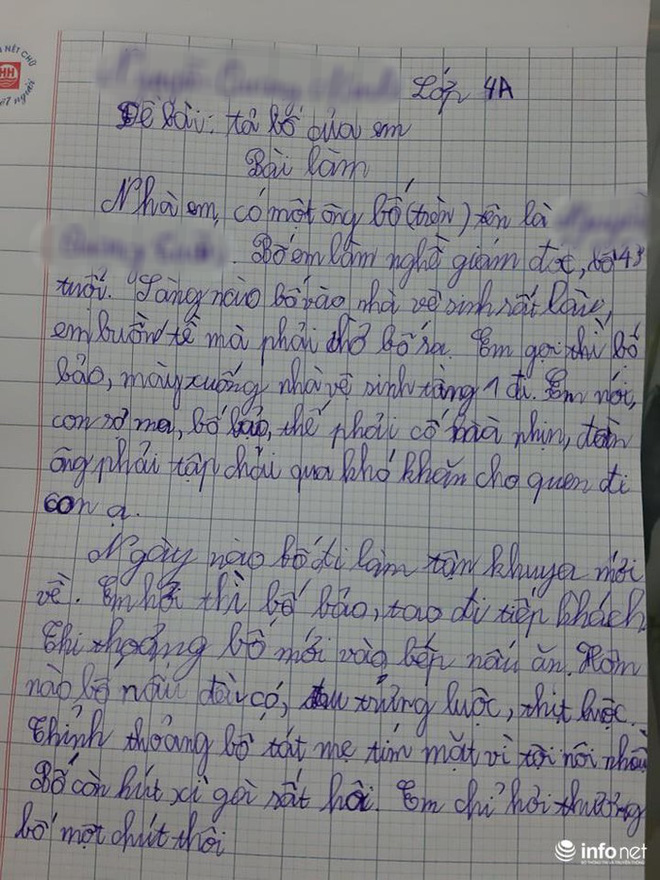 NÉT CHỮ
HH
Lớp 4A
Đề bài: tả bố của em
Bài làm
Nhà em, có một ông bố (trên) tên là
Bố em làm nghề giám đốc, bố 43
tuổi. Sáng nào bố vào nhà vệ sinh rất lâu,
em buồn tè mà phải chờ bố ra. Em gọi thì bố
bảo, mày xuống nhà vệ sinh tầng 1 đi. Em nói,
con sợ ma, bố bảo, thế phải cố mà nhịn, đàn
ông phải tập chải qua khó khăn cho quen đi
con ạ.
Ngày nào bố đi làm tận khuya mới
về. Em hỏi thì bố bảo, tao đi tiếp khách.
Thi thoảng bố mới vào bếp nấu ăn. Hôm
nào bố nấu đều có, trứng luộc, thịt luộc.
Thỉnh thoảng bố tát mẹ tím mặt vì tội nói nhiều
Bố còn hút xì gà rất hôi. Em chỉ hơi thương
bố một chút thôi
infonet